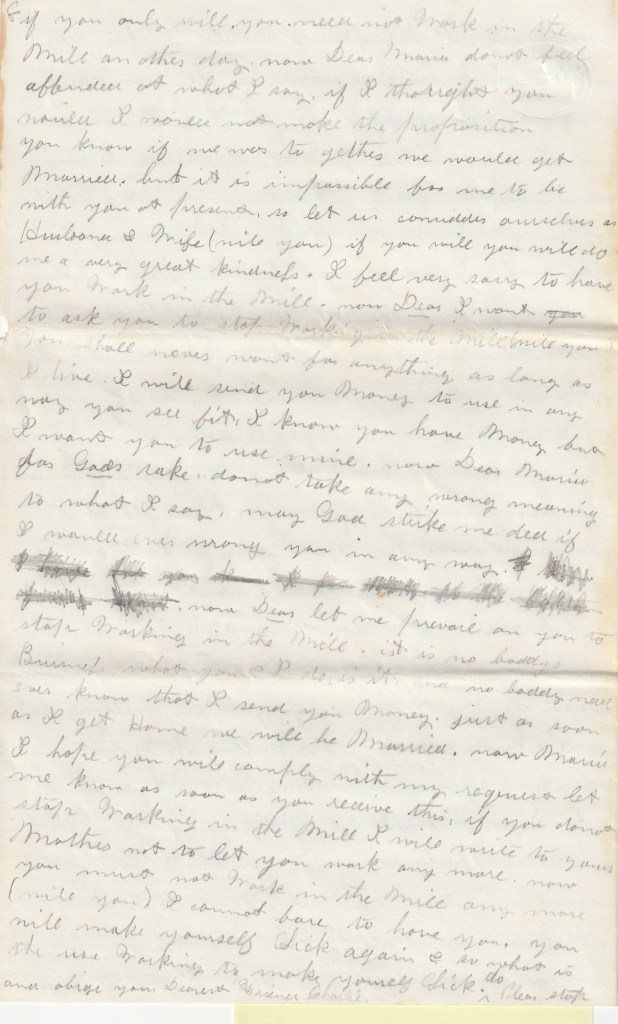 8 if you only will. you. need not Work in the
Mill another day. now Dear Maria donot feel
affended at what I say. if I thought you
would I would not make the proposition
you know if we was to gether we would get
Married. but it is impossible for me to be
with you at present, so let us considder ourselves as
Husband & Wife (will you) if you will you will do
me a very great kindness. I feel very sorry to have
you Work in the Mill. now Dear I want you
to ask you to stop Working in the Mill (will you
you shall never want for anything as long as
I live. I will send you Money to use in any
way you see fit. I know you have Money but
I want you to use mine. now Dear Maria
for Gods sake. donot take any wrong meaning
to what I say, may God strike me ded if
I would ever wrong you in any way. I
now Dear let me prevail on you to
stop Working in the Mill. it is no boddys
Buisness what you & I do, is it, and no boddy need
ever know that I send you Money. just as soon
as I get Home we will be Married. now Maria
I hope you will comply with my request let
me know as soon as you receive this, if you donot
stop Working in the Mill I will write to your
Mother not to let you work any more. now
you must not Work in the Mill any more
(will you) I cannot bare to have you, you
will make yourself Sick again & so what is
the use Working to make yourself Sick. do Pleas stop
and oblige your Dearest Friend Charlie